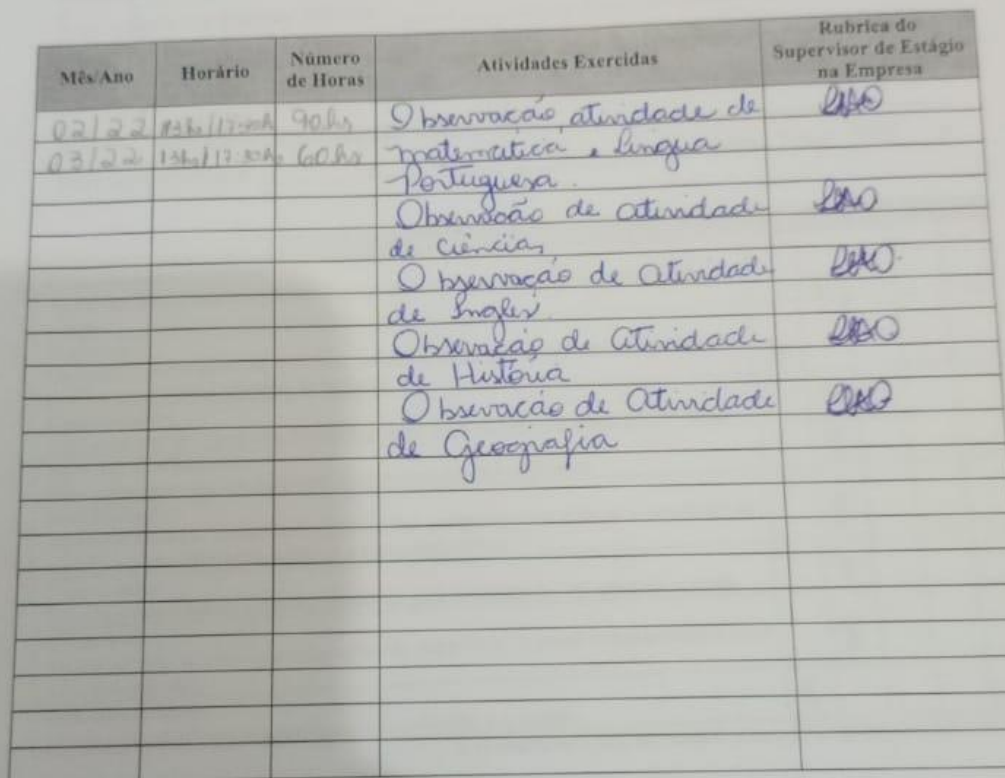 Mês/Ano Horário Número de Horas Atividades Exercidas Rubrica do Supervisor de Estágio na Empresa
02/22 13hs/17:30h 90hs Observação atividade de
03/22 13hs/17:30h 60hs matemática e Língua
Portuguesa.
Observação de atividade
de Ciências
Observação de atividade
de Inglês
Observação de atividade
de História
Obsevação de atividade
de Geografia